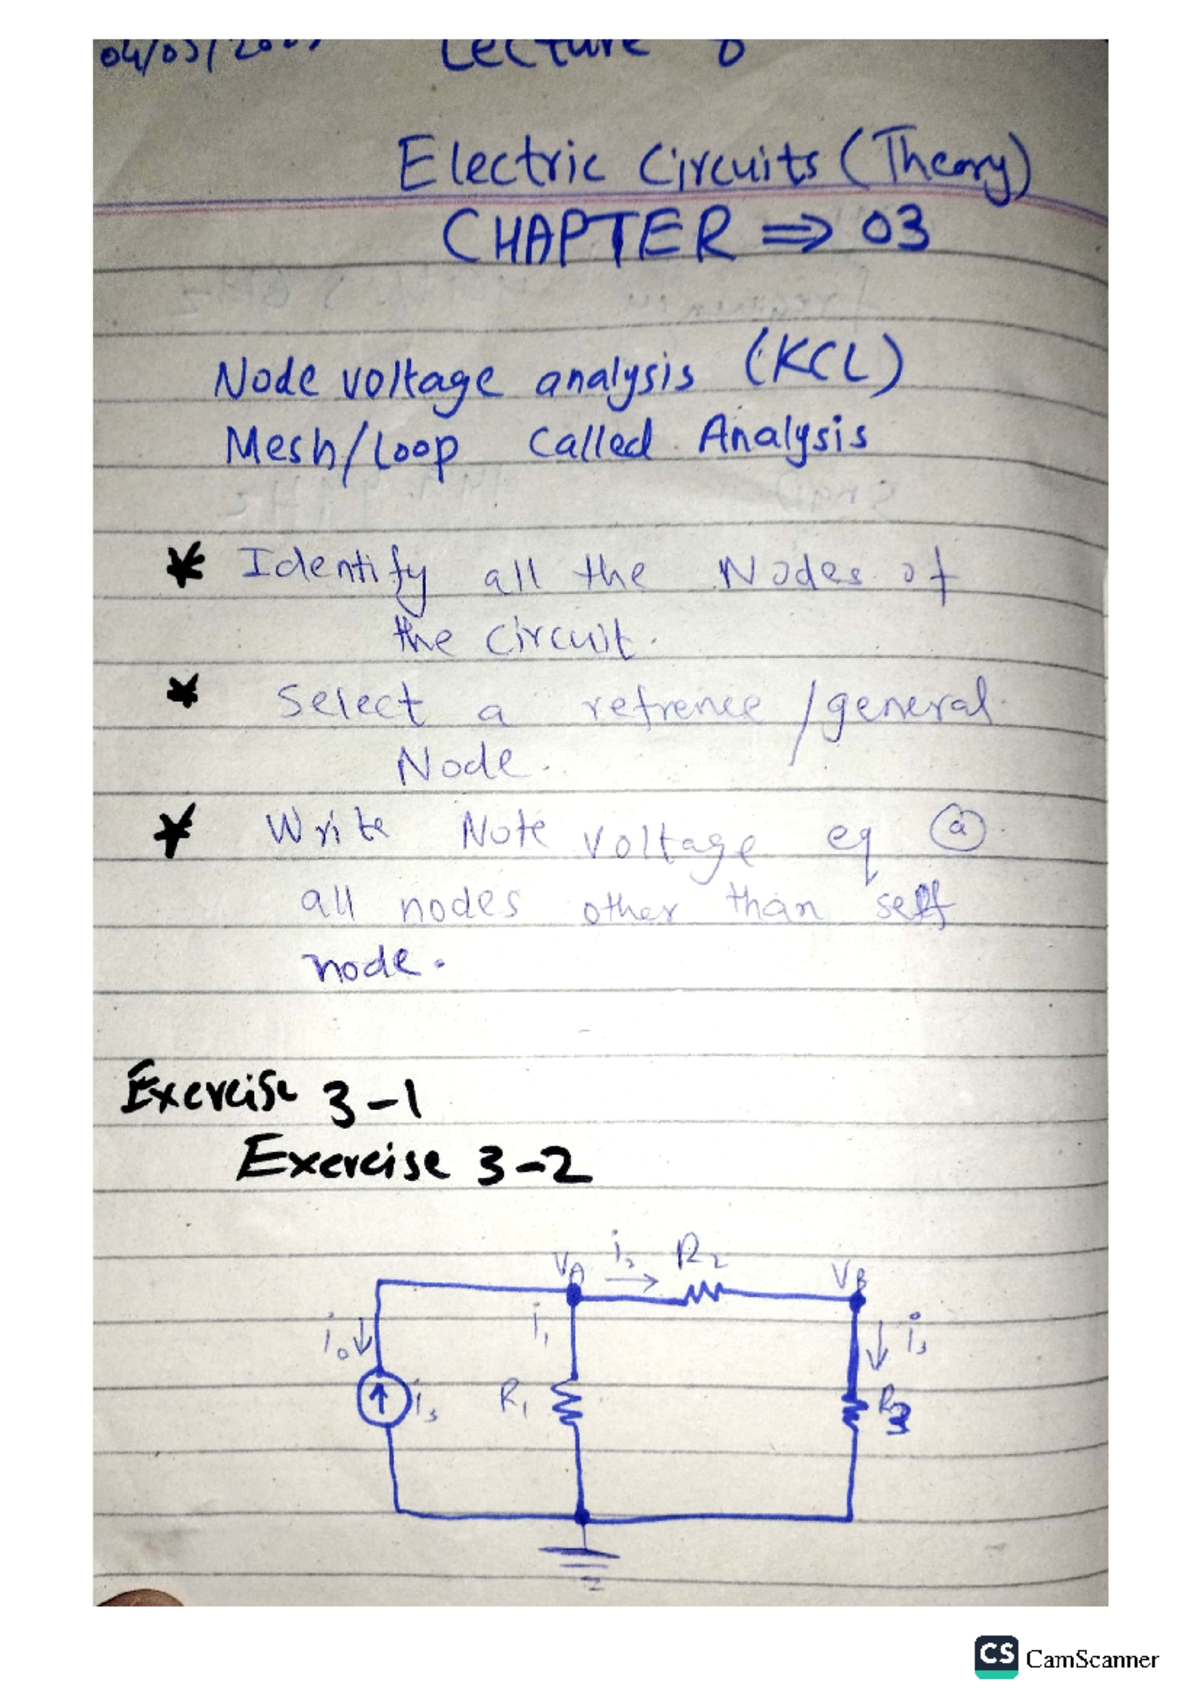 Lecture
Electric Circuits (Theory)
CHAPTER ⇒ 03
Node voltage analysis (KCL)
Mesh/Loop Called Analysis
* Identify all the Nodes of
the circuit.
* Select a refrence /general
Node.
* Write Note voltage eq @
all nodes other than self
node.
Exercise 3-1
Exercise 3-2
VA i₂ → R₂ VB
i₀ ↓ i₁ ↓ i₃
↑ iₛ R₁ R3
CS CamScanner